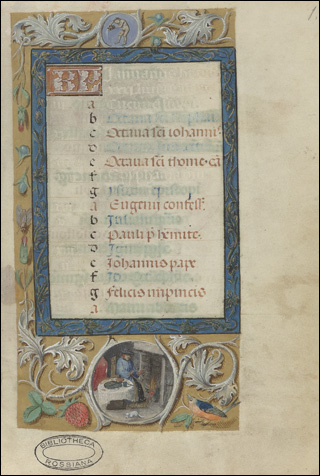 KL
a
b
c Octava sci iohannis
d
e Octava sci thome cā
f
g
a Eugenij confess.
b
c Pauli p̄ hemite.
d
e Iohannis pape
f
g felicis inpincis
a
BIBLIOTHECA
ROSSIANA
1